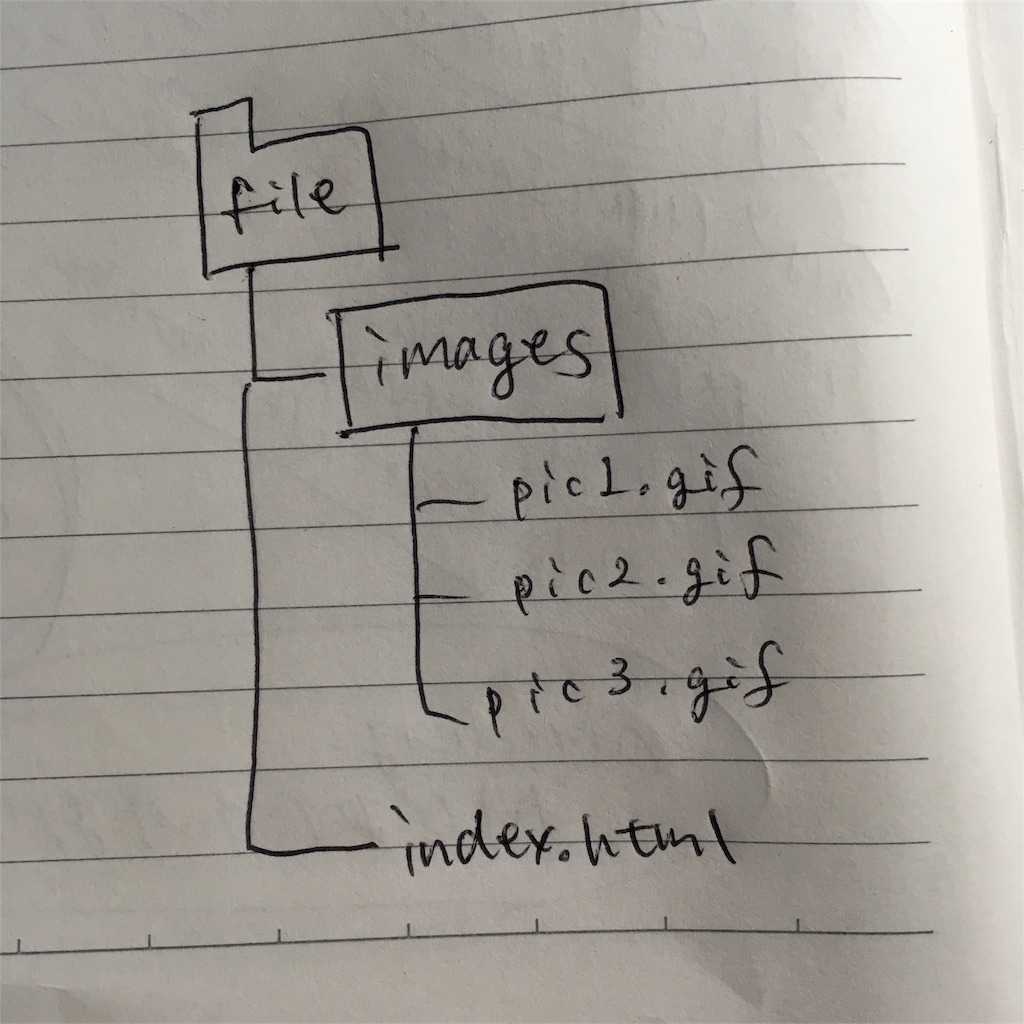 file
images
pic1.gif
pic2.gif
pic3.gif
index.html